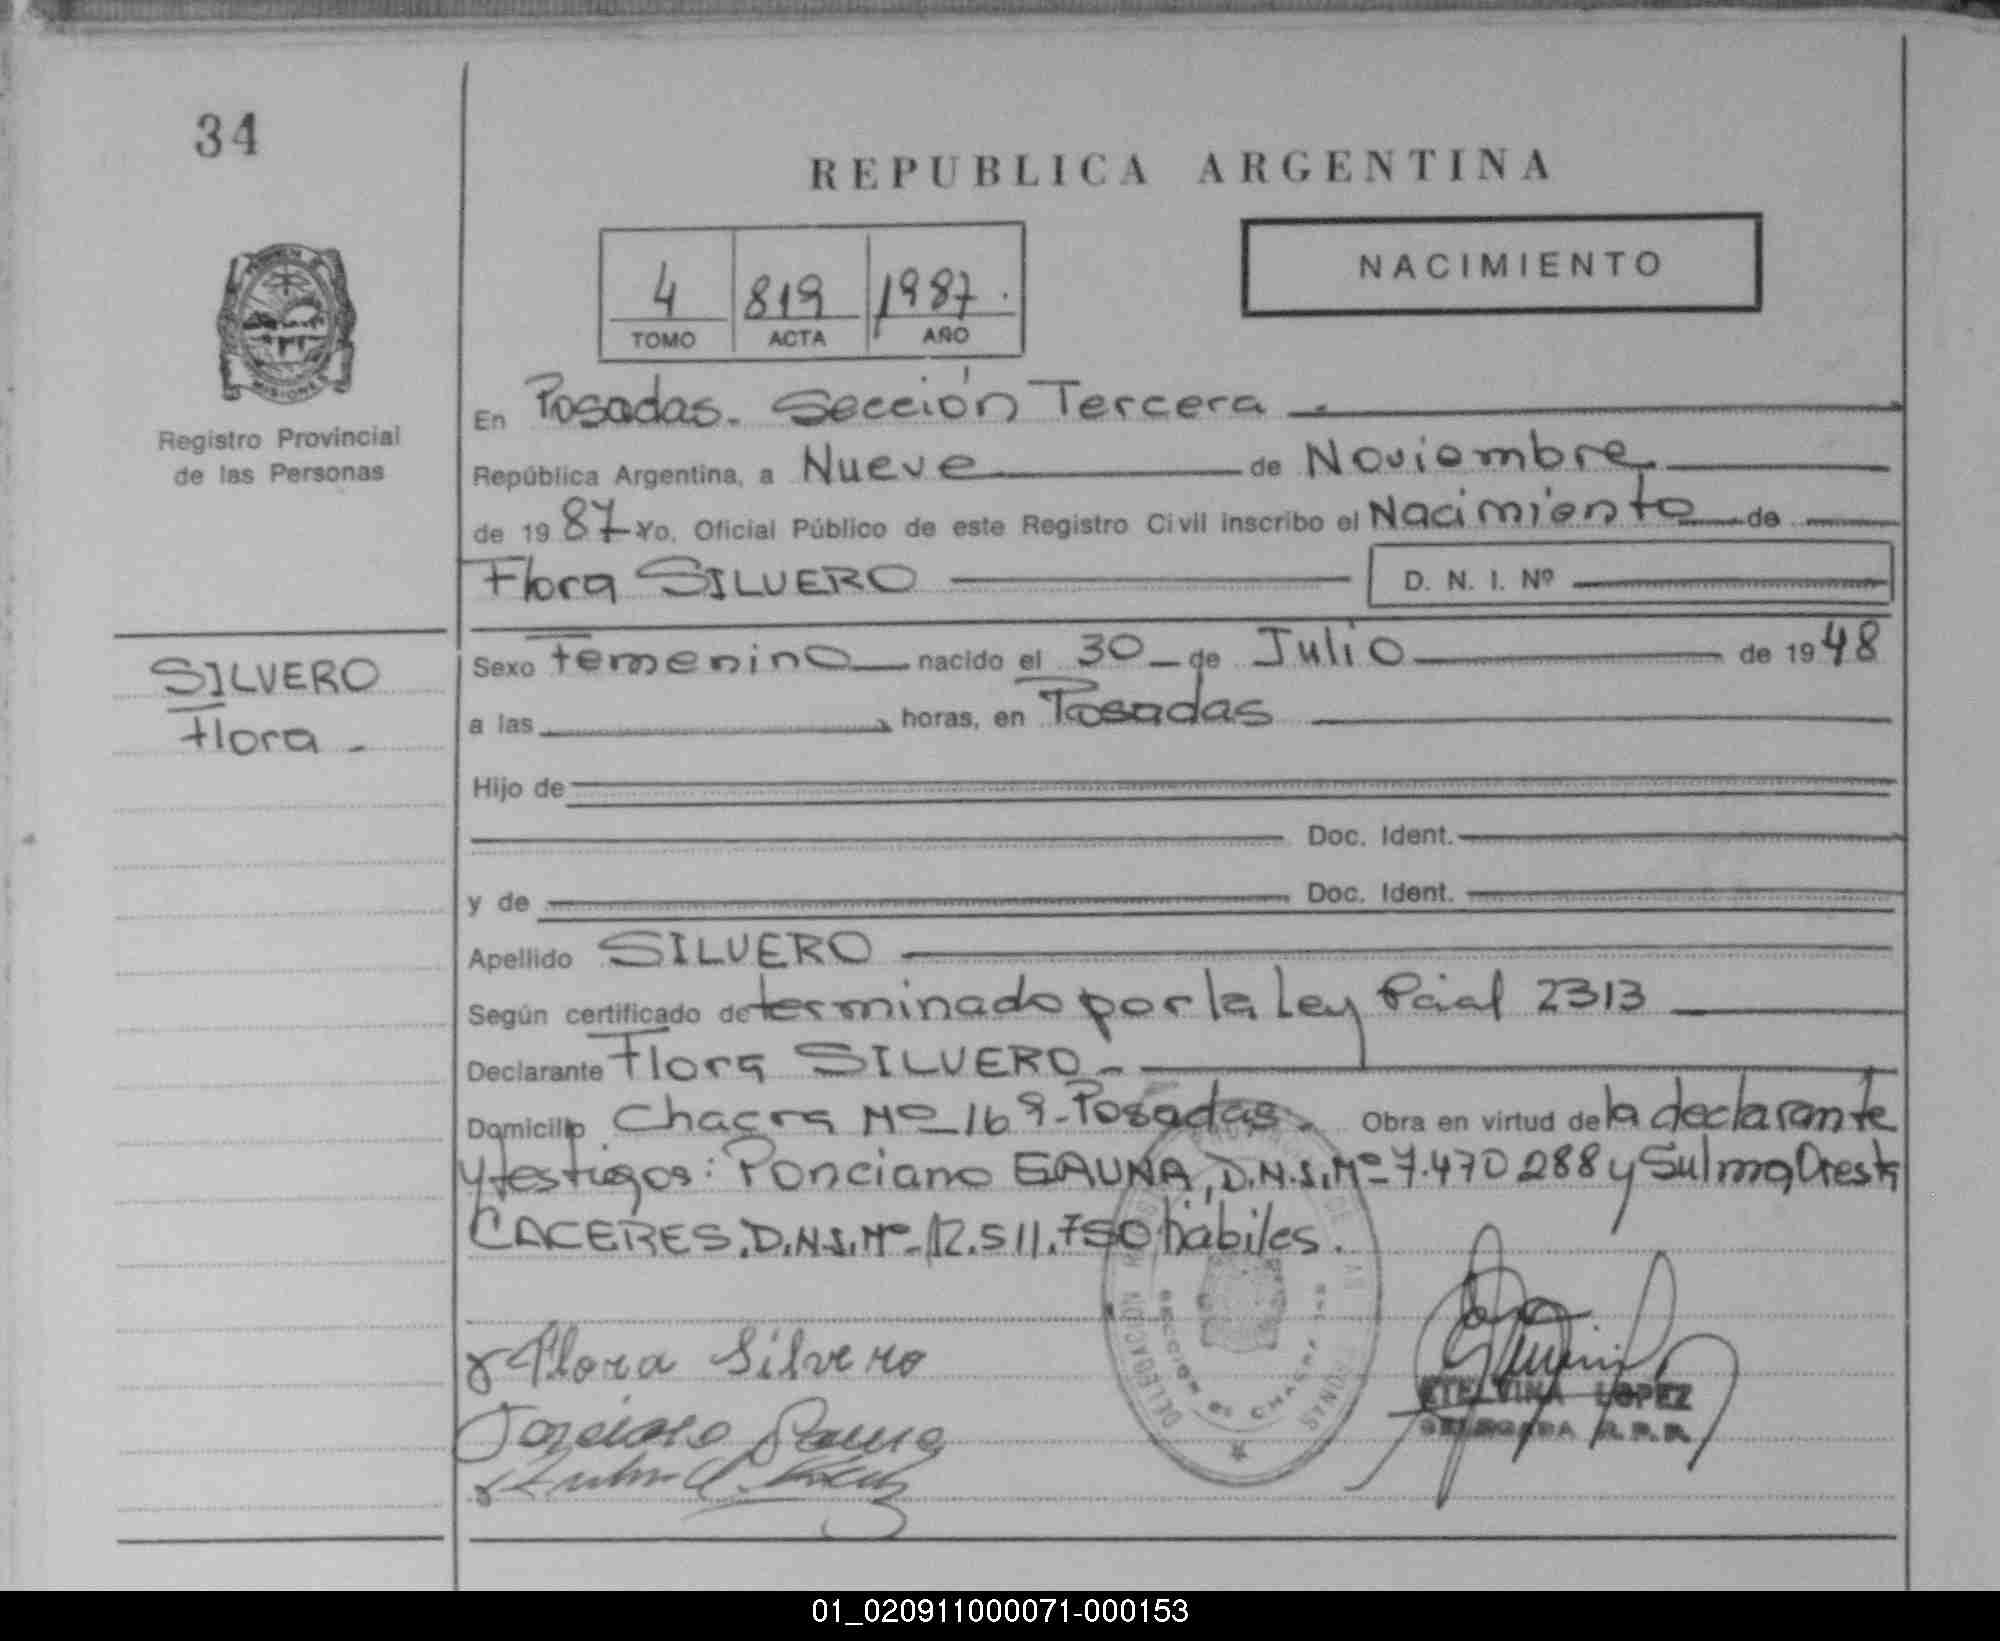 34
REPUBLICA ARGENTINA
4 819 1987.
TOMO ACTA AÑO
NACIMIENTO
MISIONES
Registro Provincial
de las Personas
En Posadas. Sección Tercera
República Argentina, a Nueve de Noviembre
de 1987 Yo, Oficial Público de este Registro Civil inscribo el Nacimiento de
Flora SILVERO D. N. I. Nº
SILVERO
Flora -
Sexo Femenino nacido el 30 de Julio de 1948
a las horas, en Posadas
Hijo de
Doc. Ident.
y de Doc. Ident.
Apellido SILVERO
Según certificado determinado por la Ley Pcial 2313
Declarante Flora SILVERO -
Domicilio Chacra Nº 169 - Posadas. Obra en virtud de la declarante
y testigos: Ponciano GAUNA, D.N.I. Nº 7.470288 y Sulma Oreste
CACERES, D.N.I. Nº 12.511.750 hábiles.
Flora Silvero
Ponciano Gauna
ETELVINA LOPEZ
DELEGADA R.P.P.
01_020911000071-000153